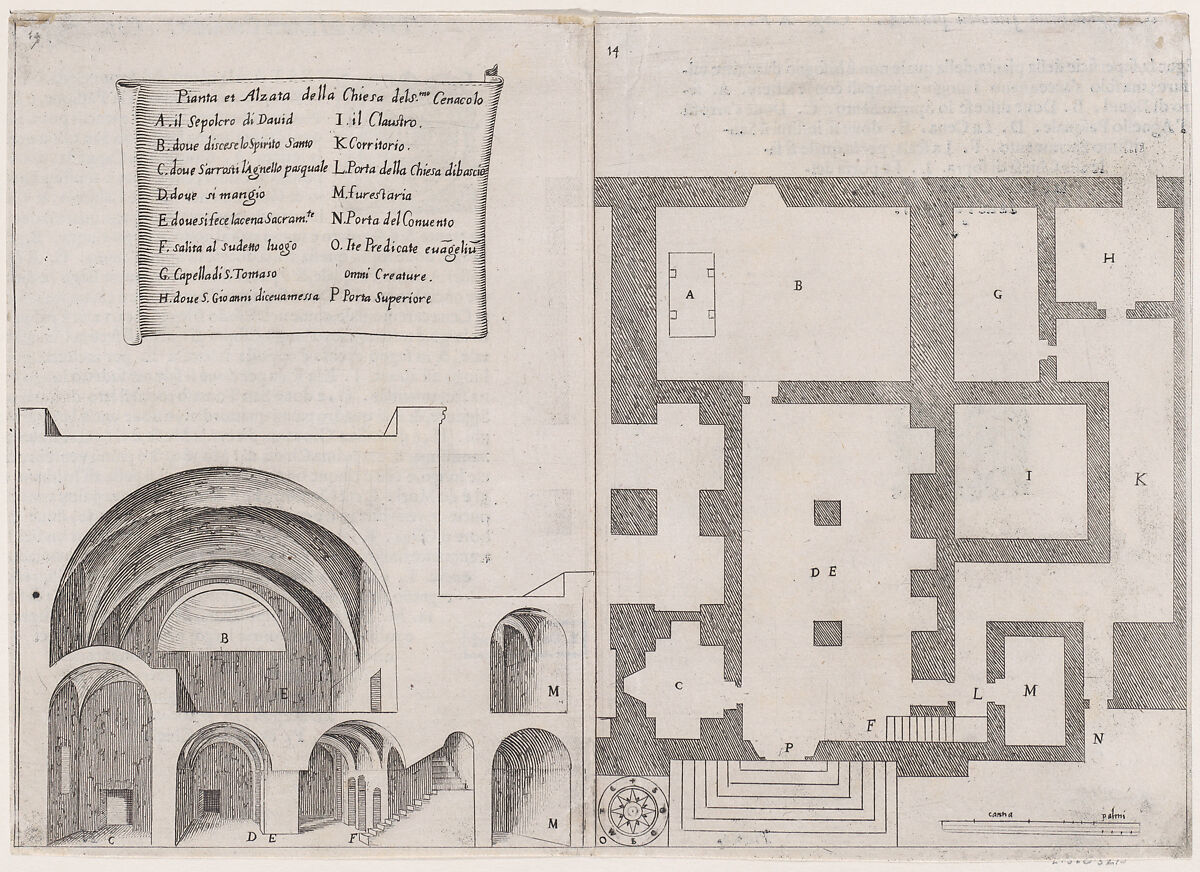 14
Pianta et Alzata della Chiesa del s.mo Cenacolo
A. il Sepolcro di Dauid
B. doue discese lo Spirito Santo
C. doue S'arrosti l'Agnello pasquale
D. doue si mangio
E doue si fece la cena Sacram.te
F. salita al sudetto luogo
G. Capella di S. Tomaso
H. doue S. Gioanni diceua messa
I. il Claustro.
K Corritorio.
L. Porta della Chiesa dibascio
M. furestaria
N. Porta del Conuento
O. Ite Predicate euãgeliũ
omni Creature.
P Porta Superiore
B
E
M
C
D E
F
M
14
A
B
G
H
I
K
D E
C
L
M
F
P
N
canna palmi